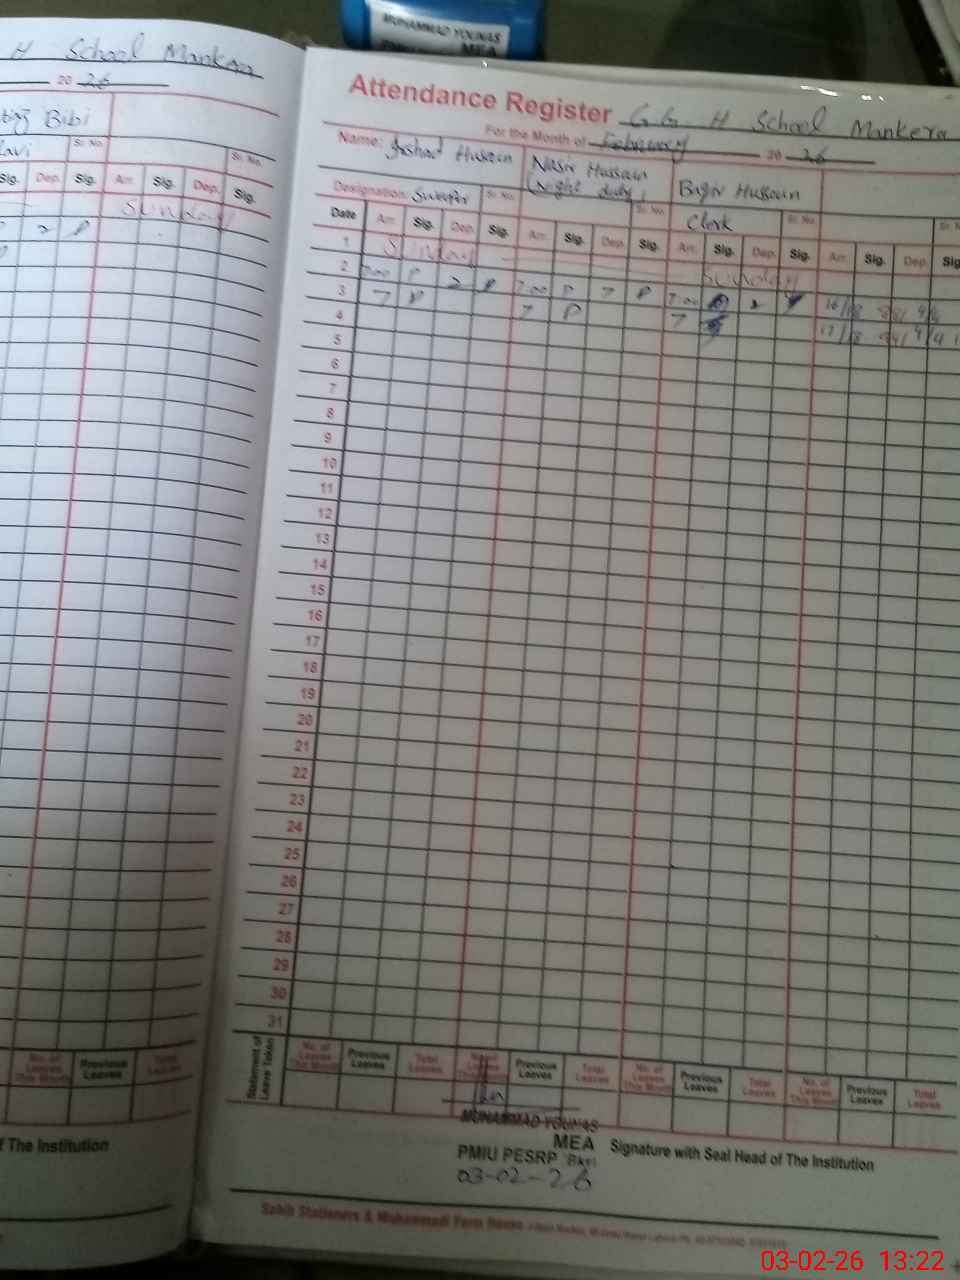 MUHAMMAD YOUNAS
MEA
H School Mankera
20 26
Bibi
Sr. No.
Sr. No.
Sig. Dep. Sig. Arr. Sig. Dep. Sig.
Sunday
2 P
Attendance Register G.G H School Mankera
For the Month of February 20 26
Name: Irshad Hussain Nasir Hussain Bigir Hussain
(night duty)
Designation: Sweeper Sr. No. Sr. No. Clerk Sr. No. Sr. N
Date Arr. Sig. Dep. Sig. Arr. Sig. Dep. Sig. Arr. Sig. Dep. Sig. Arr. Sig. Dep. Sig
1 Sunday Sunday
2 7:00 P 2 P 7:00 P 7 P 7:00 2
3 7 P 7 P 7
4
5
6
7
8
9
10
11
12
13
14
15
16
17
18
19
20
21
22
23
24
25
26
27
28
29
30
31
Statement of Leave Taken
No. of Leaves This Month Previous Leaves Total Leaves
No. of Leaves This Month Previous Leaves Total Leaves No. of Leaves This Month Previous Leaves Total Leaves No. of Leaves This Month Previous Leaves Total Leaves No. of Leaves This Month Previous Leaves Total Leaves
MUHAMMAD YOUNAS
MEA
PMIU PESRP Bkr
03-02-26
f The Institution
Signature with Seal Head of The Institution
Sahib Stationers & Muhammadi Form House
03-02-26 13:22